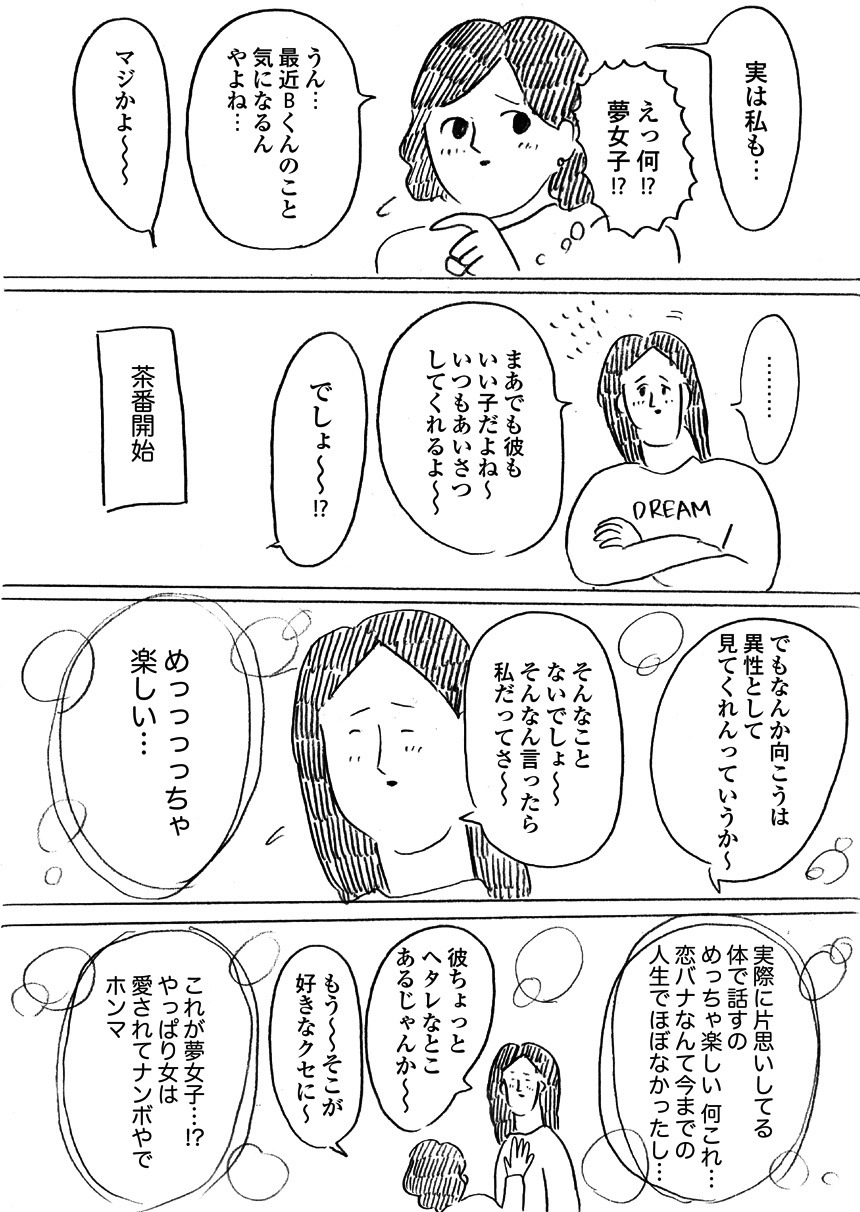 実は私も…
えっ何⁉
夢女子⁉
うん…
最近Bくんのこと
気になるん
やよね…
マジかよ〜〜
………
まあでも彼も
いい子だよね〜
いつもあいさつ
してくれるよ〜〜
DREAM
でしょ〜〜⁉
茶番開始
でもなんか向こうは
異性として
見てくれんっていうか〜
そんなこと
ないでしょ〜〜
そんなん言ったら
私だってさ〜〜
めっっっっっちゃ
楽しい…
実際に片思いしてる
体で話すの
めっちゃ楽しい 何これ…
恋バナなんて今までの
人生でほぼなかったし…
彼ちょっと
ヘタレなとこ
あるじゃんか〜〜
もう〜〜そこが
好きなクセに〜
これが夢女子…!?
やっぱり女は
愛されてナンボやで
ホンマ